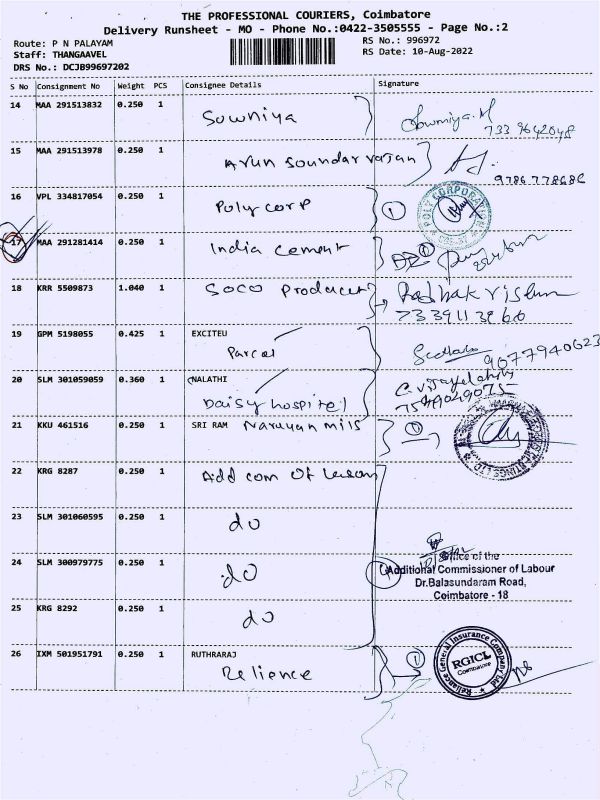 THE PROFESSIONAL COURIERS, Coimbatore
Delivery Runsheet - MO - Phone No.:0422-3505555 - Page No.:2
Route: P N PALAYAM
Staff: THANGAAVEL
DRS No.: DCJB99697202
RS No.: 996972
RS Date: 10-Aug-2022
S No Consignment No Weight PCS Consignee Details Signature
14 MAA 291513832 0.250 1
Sowniya
Sowmiya.M
15 MAA 291513978 0.250 1
Arun Soundar rajan
16 VPL 334817054 0.250 1
Poly corp
1
POLY CORPORATION
17 MAA 291281414 0.250 1
India cement
1
18 KRR 5509873 1.040 1
SOCO Producer
19 GPM 5198055 0.425 1 EXCITEU
Parcel
9077940623
20 SLM 301059059 0.360 1 CNALATHI
Daisy hospitel
21 KKU 461516 0.250 1 SRI RAM Narayan mils
1
22 KRG 8287 0.250 1
Add com Of
23 SLM 301060595 0.250 1
do
24 SLM 300979775 0.250 1
do
Office of the
Additional Commissioner of Labour
Dr.Balasundaram Road,
Coimbatore - 18
25 KRG 8292 0.250 1
do
26 IXM 501951791 0.250 1 RUTHRARAJ
Relience
1
Reliance General Insurance Company Ltd
RGICL
Coimbatore